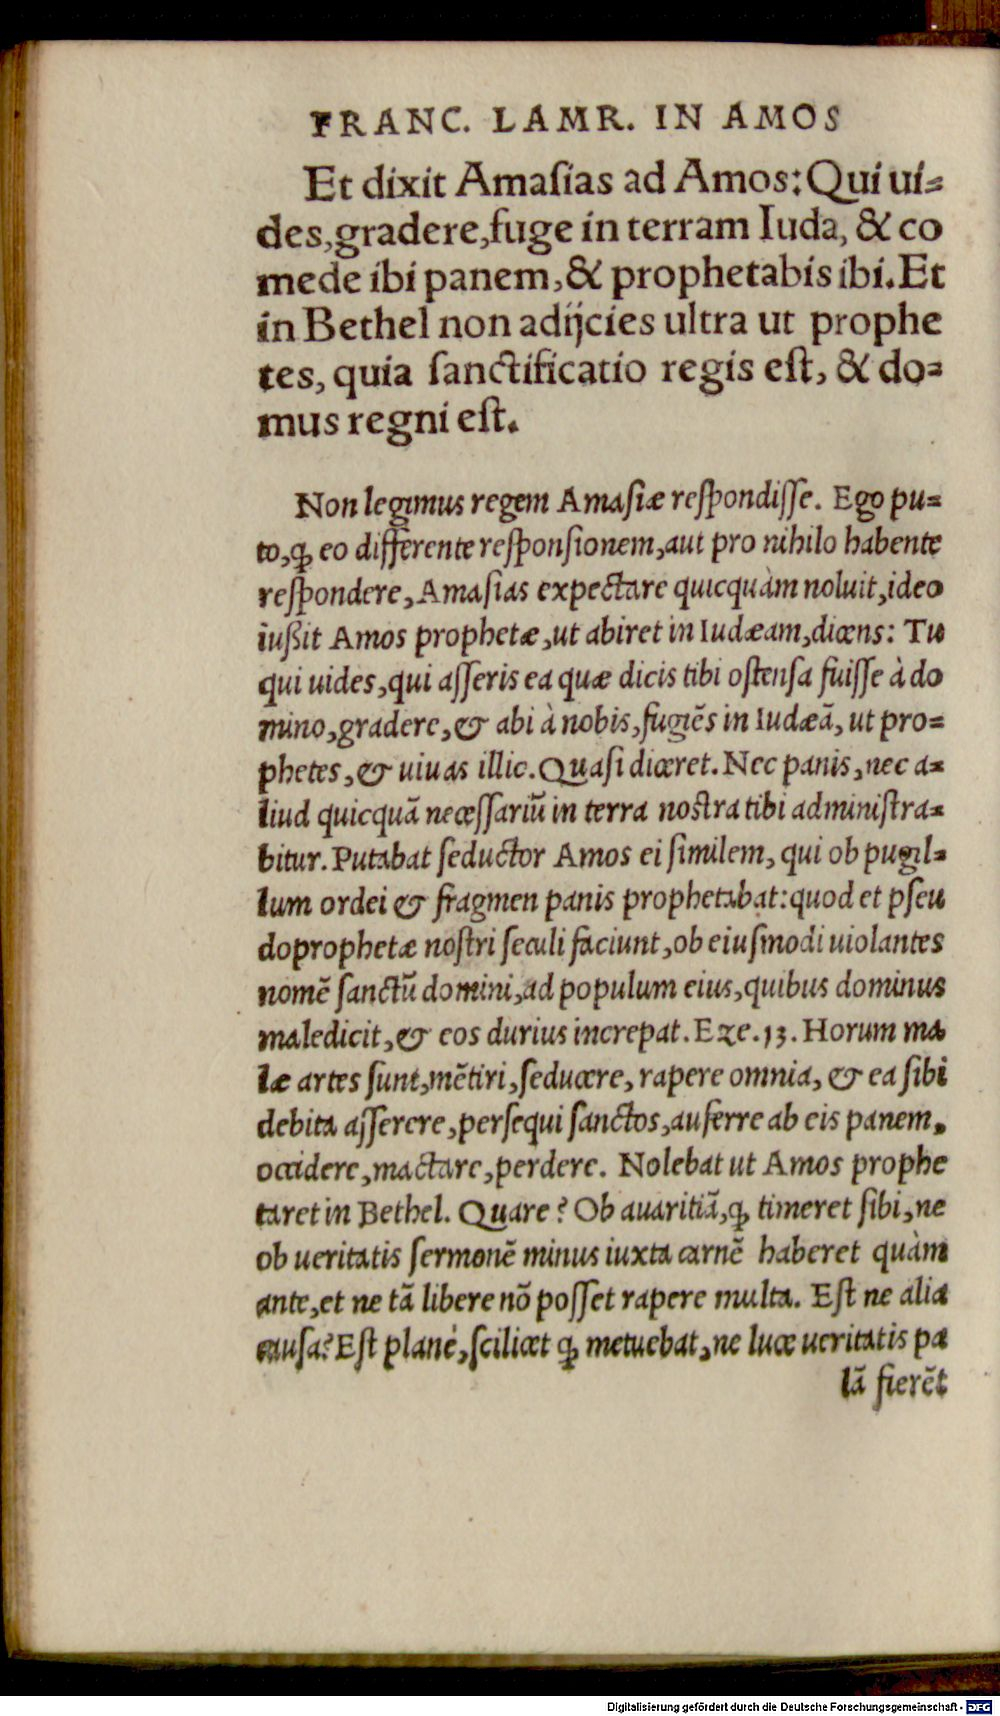 FRANC. LAMR. IN AMOS
Et dixit Amaſias ad Amos: Qui ui⸗
des, gradere, fuge in terram Iuda, & co
mede ibi panem, & prophetabis ibi. Et
in Bethel non adijcies ultra ut prophe
tes, quia ſanctificatio regis eſt, & do⸗
mus regni eſt.
Non legimus regem Amaſiæ reſpondiſſe. Ego pu⸗
to, ꝙ eo differente reſponſionem, aut pro nihilo habente
reſpondere, Amaſias expectare quicquàm noluit, ideo
iußit Amos prophetæ, ut abiret in Iudæam, dicens: Tu
qui uides, qui aſſeris ea quæ dicis tibi oſtenſa fuiſſe à do
mino, gradere, & abi à nobis, fugiẽs in Iudæã, ut pro⸗
phetes, & uiuas illic. Quaſi diceret. Nec panis, nec a⸗
liud quicquã neceſſariũ in terra noſtra tibi adminiſtra⸗
bitur. Putabat ſeductor Amos ei ſimilem, qui ob pugil⸗
lum ordei & fragmen panis prophetabat: quod et pſeu
doprophetæ noſtri ſeculi faciunt, ob eiuſmodi uiolantes
nomẽ ſanctũ domini, ad populum eius, quibus dominus
maledicit, & eos durius increpat. Eze. 13. Horum ma
læ artes ſunt, mẽtiri, ſeducere, rapere omnia, & ea ſibi
debita aſſerere, perſequi ſanctos, auferre ab eis panem,
occidere, mactare, perdere. Nolebat ut Amos prophe
taret in Bethel. Quare? Ob auaritiã, ꝙ timeret ſibi, ne
ob ueritatis ſermonẽ minus iuxta carnẽ haberet quàm
ante, et ne tã libere nõ poſſet rapere multa. Eſt ne alia
cauſa? Eſt planè, ſcilicet ꝙ metuebat, ne luce ueritatis pa
lã fierẽt
Digitalisierung gefördert durch die Deutsche Forschungsgemeinschaft - DFG